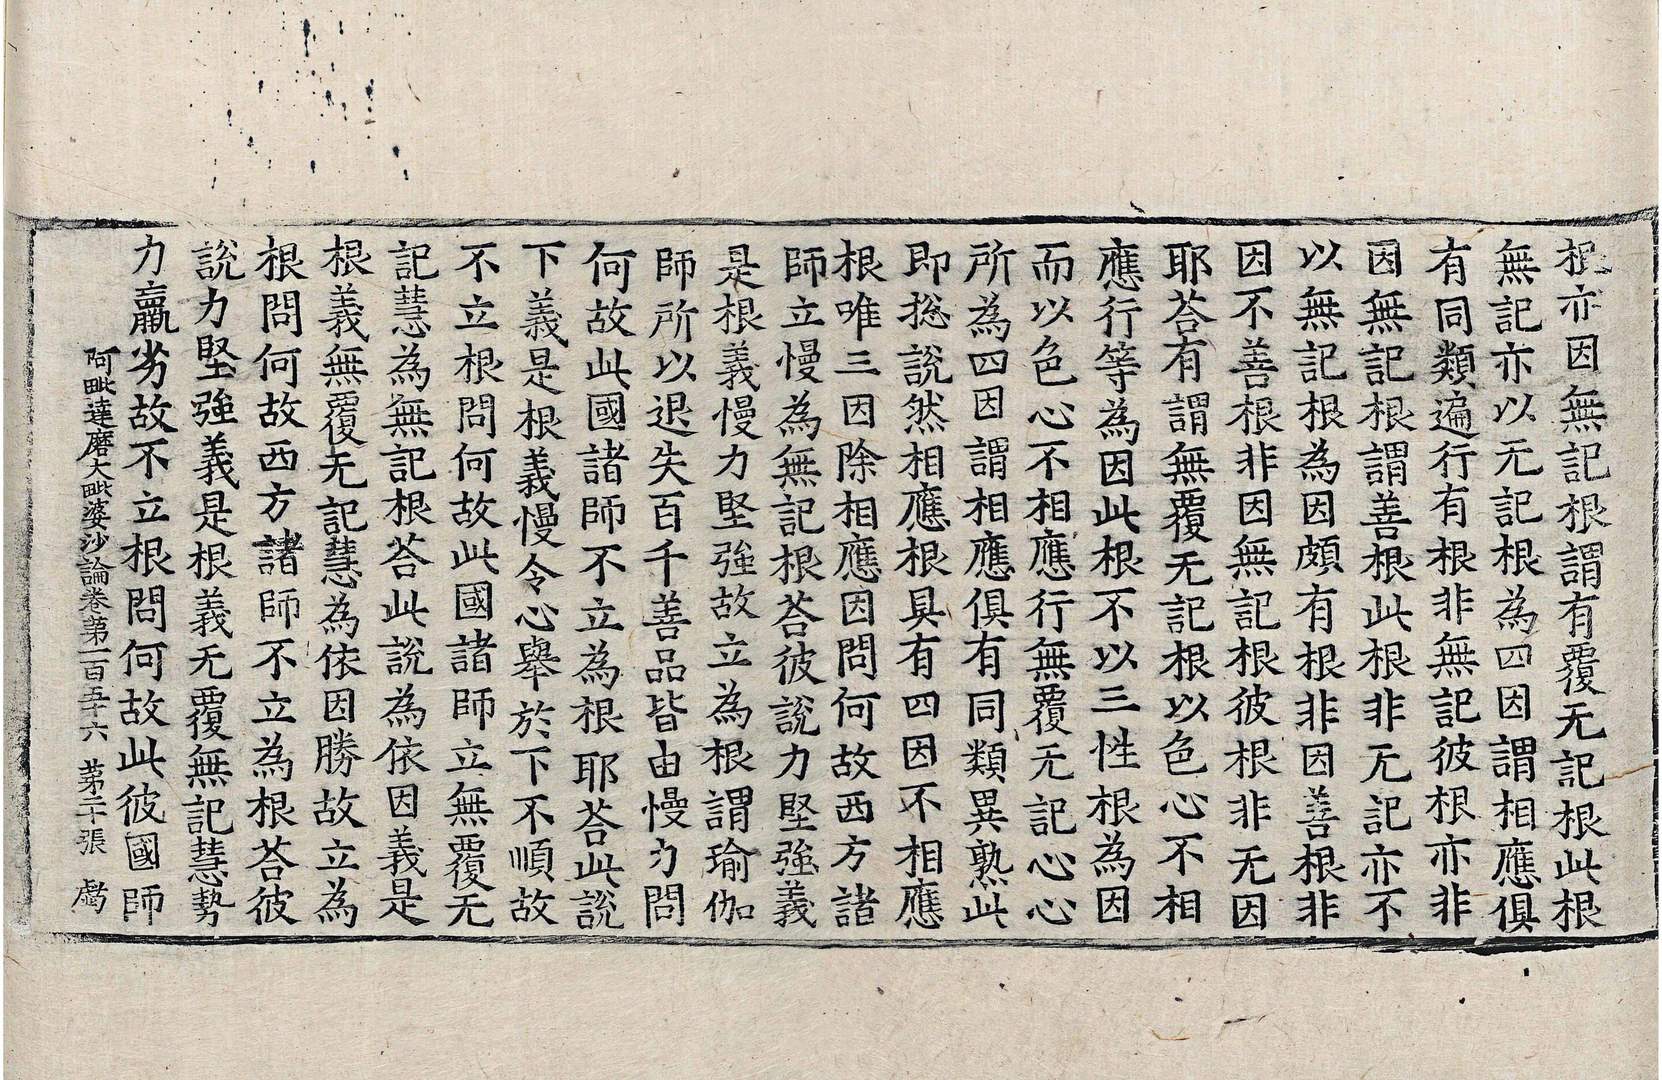 根亦因無記根謂有覆无記根此根
無記亦以无記根為四因謂相應俱
有同類遍行有根非無記彼根亦非
因無記根謂善根此根非无記亦不
以無記根為因頗有根非因善根非
因不善根非因無記根彼根非无因
耶荅有謂無覆无記根以色心不相
應行等為因此根不以三性根為因
而以色心不相應行無覆无記心心
所為四因謂相應俱有同類異熟此
即捴說然相應根具有四因不相應
根唯三因除相應因問何故西方諸
師立慢為無記根荅彼說力堅強義
是根義慢力堅強故立為根謂瑜伽
師所以退失百千善品皆由慢力問
何故此國諸師不立為根耶荅此說
下義是根義慢令心舉於下不順故
不立根問何故此國諸師立無覆无
記慧為無記根荅此說為依因義是
根義無覆无記慧為依因勝故立為
根問何故西方諸師不立為根荅彼
說力堅強義是根義无覆無記慧勢
力羸劣故不立根問何故此彼國師
阿毗達磨大毗婆沙論卷第一百五十六 第二十張